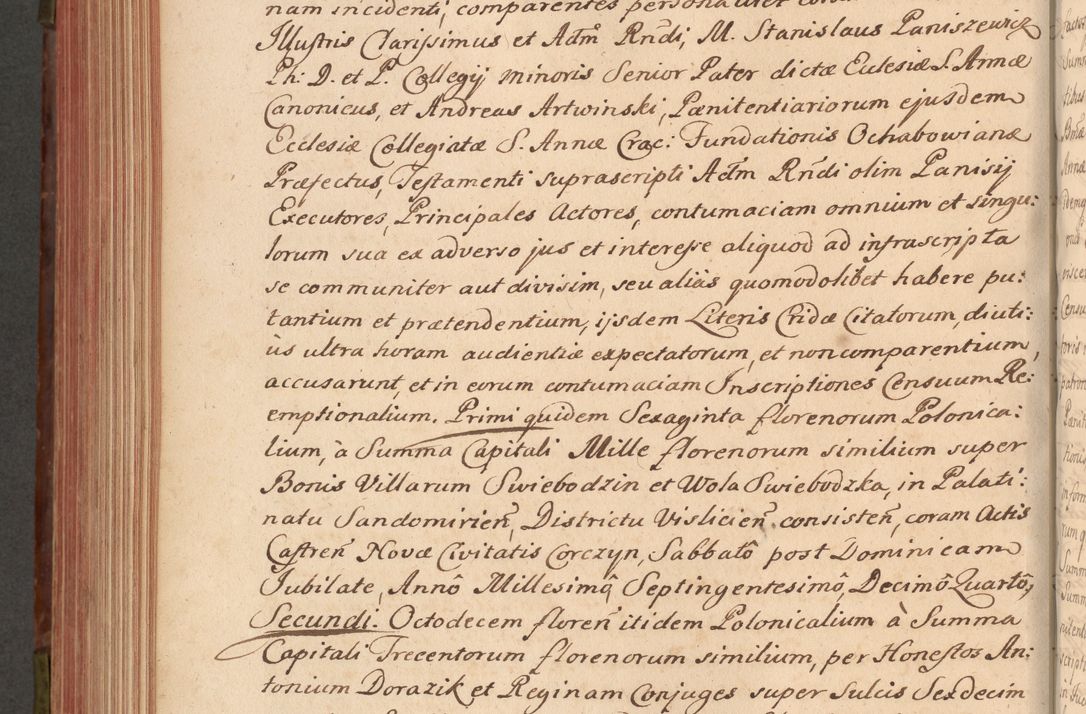 nam incidenti, comparentes personaliter
Illustris Clarissimus et Adm̃ Rñdi, M. Stanislaus Paniszewicz
Ph: D. et P. Collegij minoris Senior Pater dictæ Ecclesiæ S. Annæ
Canonicus, et Andreas Artwinski, Pænitentiariorum ejusdem
Ecclesiæ Collegiatæ S. Annæ Crac: Fundationis Ochabowianæ
Præfectus, Testamenti suprascripti Adm̃ Rñdi olim Panisij
Executores, Principales Actores, contumaciam omnium et singu:
lorum sua ex adverso jus et interesse aliquod ad infrascripta
se communiter aut divisim, seu aliàs quomodolibet habere pu:
tantium et prætendentium, ijsdem Literis Cridæ Citatorum, diuti:
ùs ultra horam audientiæ expectatorum, et non comparentium,
accusarunt, et in eorum contumaciam Inscriptiones Censuum Re:
emptionalium. Primi quidem Sexaginta florenorum Polonica:
lium, à Summa Capitali Mille florenorum similium super
Bonis Villarum Swiebodzin et Wola Swiebodzka, in Palati:
natu Sandomirieñ, Districtu Vislicieñ consisteñ, coram Actis
Castreñ Novæ Civitatis Corczyn, Sabbatô post Dominicam
Jubilate, Annô Millesimô Septingentesimô, Decimô Quartô,
Secundi. Octodecem floreñ itidem Polonicalium à Summa
Capitali Trecentorum florenorum similium, per Honestos An:
tonium Dorazik et Reginam Conjuges super Sulcis Sexdecim